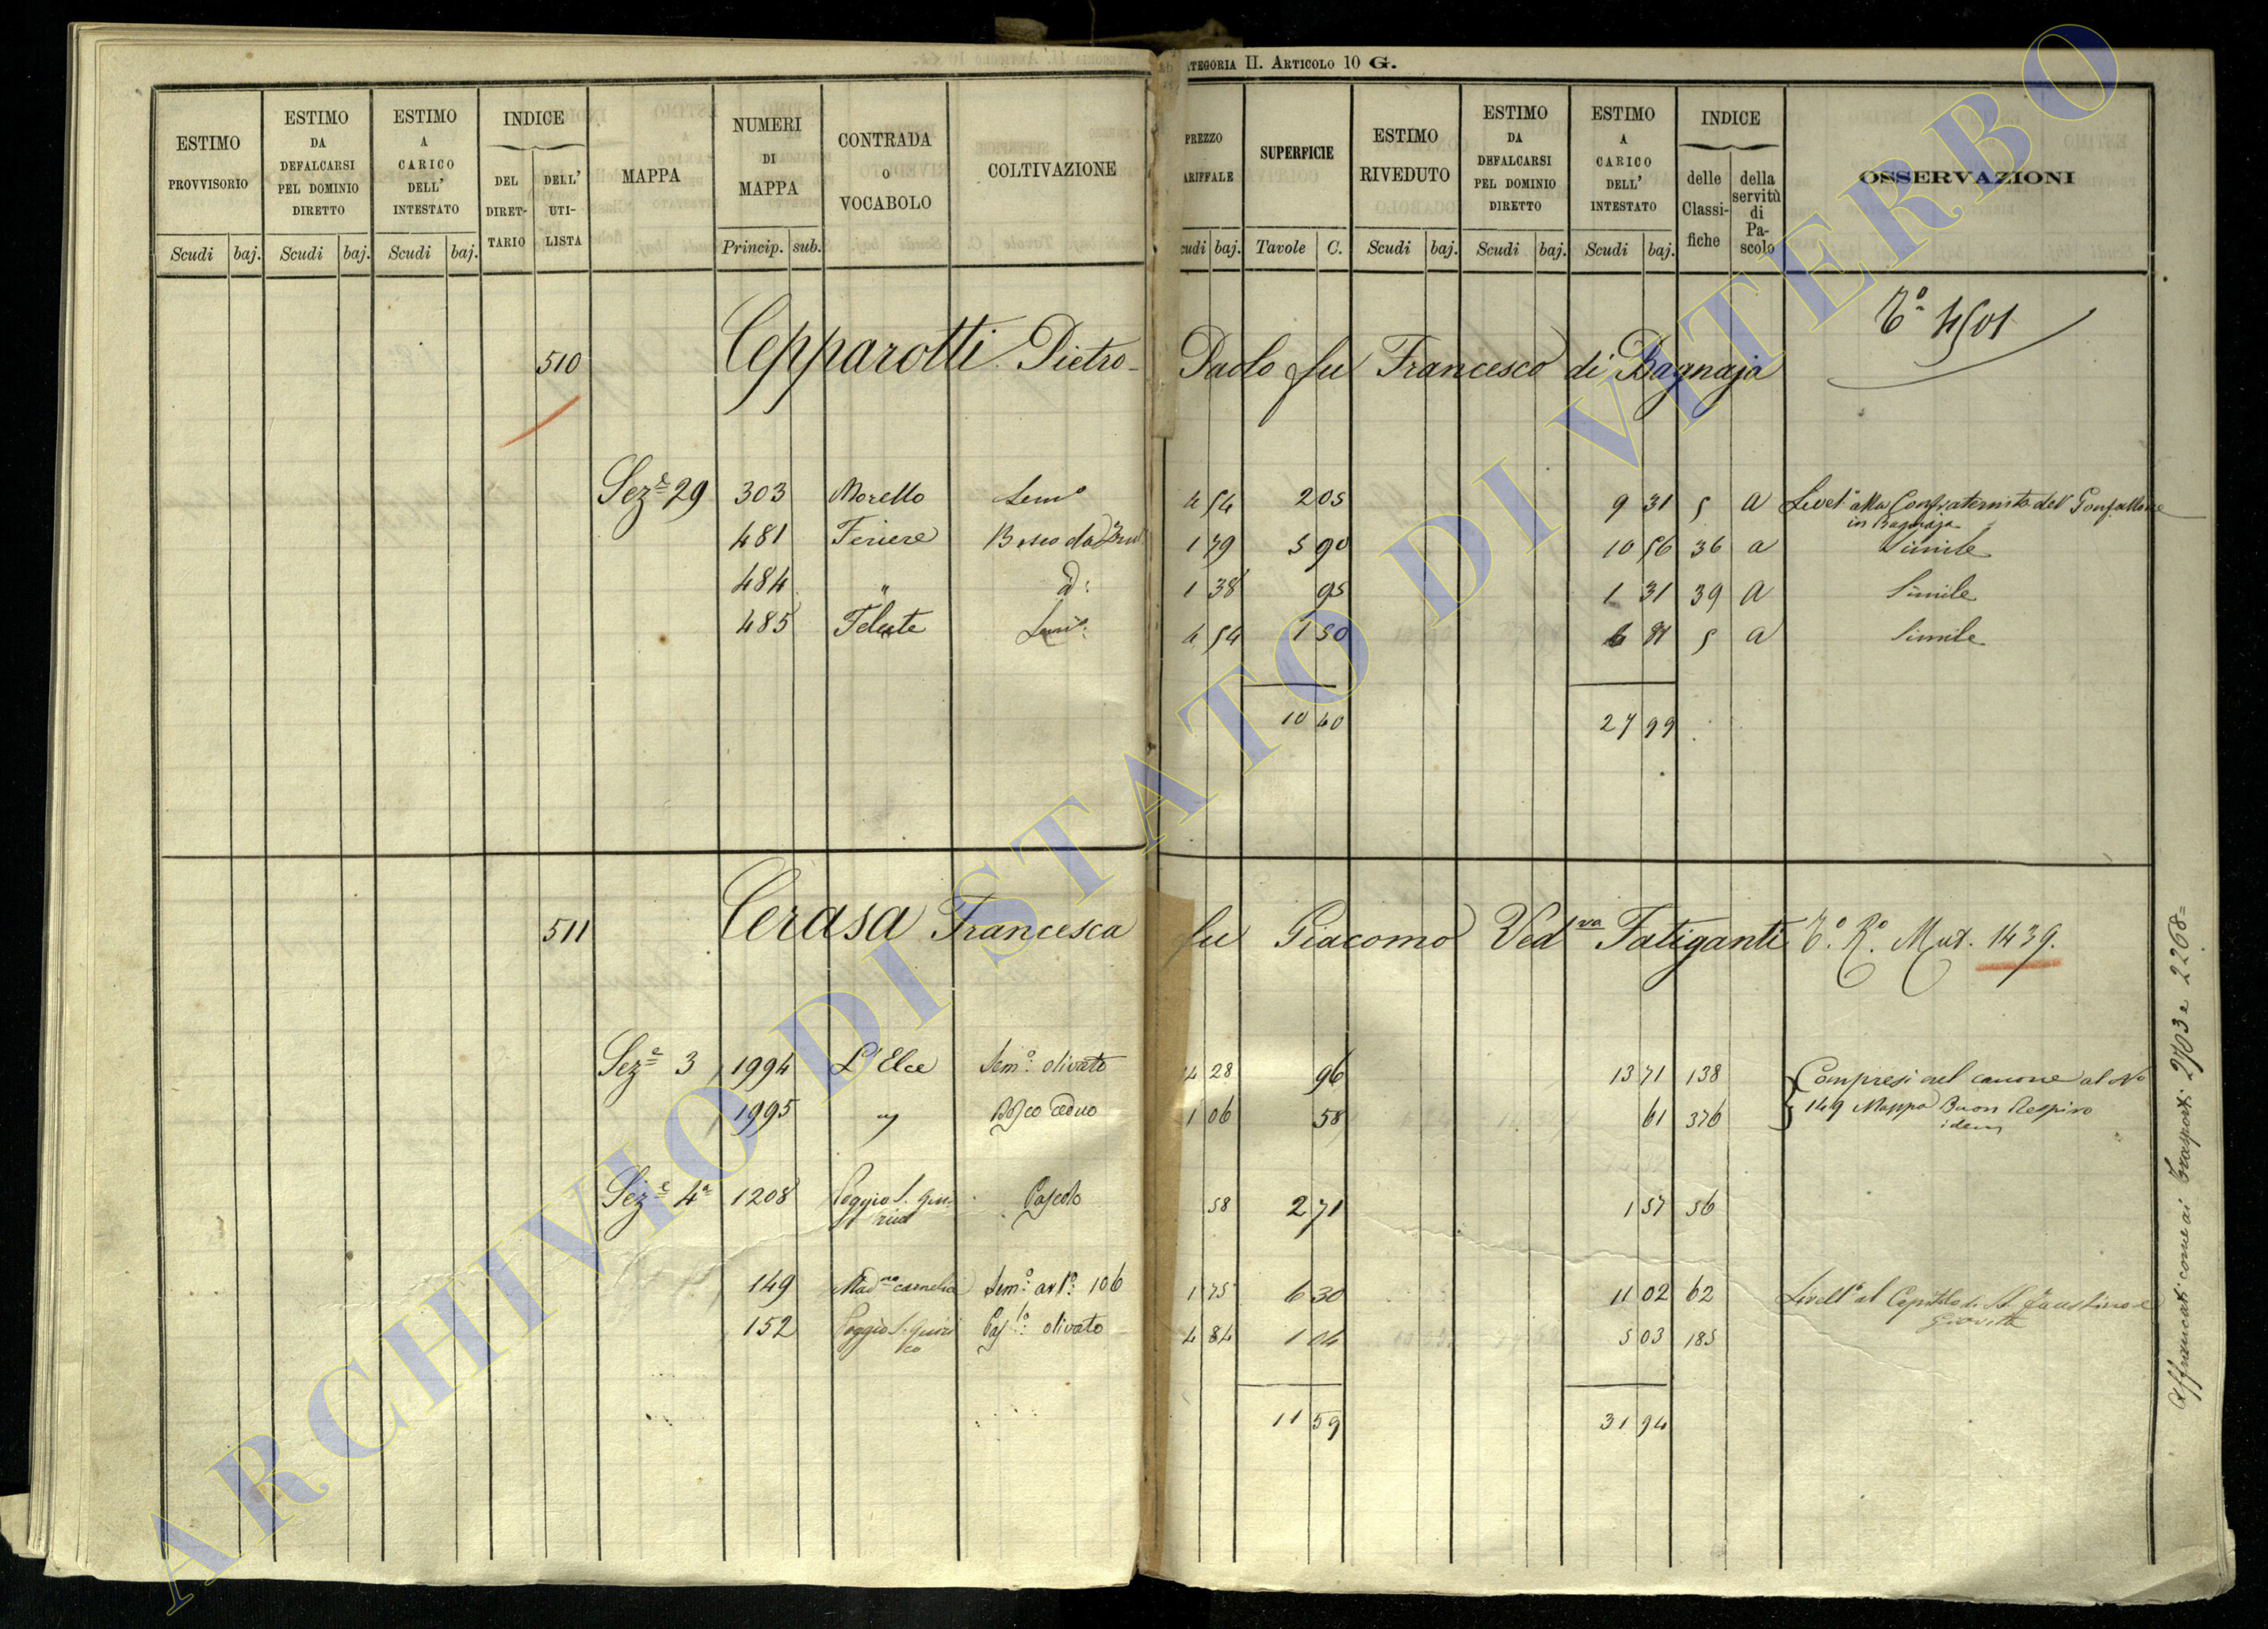 CATEGORIA II. ARTICOLO 10 G.
ESTIMO PROVVISORIO
ESTIMO DA DEFALCARSI PEL DOMINIO DIRETTO
ESTIMO A CARICO DELL' INTESTATO
INDICE
DEL DIRETTARIO
DELL' UTILISTA
MAPPA
NUMERI DI MAPPA
CONTRADA O VOCABOLO
COLTIVAZIONE
PREZZO TARIFFALE
SUPERFICIE
ESTIMO RIVEDUTO
ESTIMO DA DEFALCARSI PEL DOMINIO DIRETTO
ESTIMO A CARICO DELL' INTESTATO
INDICE
delle Classifiche
della servitù di Pascolo
OSSERVAZIONI
Scudi baj. Scudi baj. Scudi baj. Princip. sub. Scudi baj. Tavole C. Scudi baj. Scudi baj. Scudi baj.
Tº 4501
510 Cepparotti Pietro Paolo fu Francesco di Bagnaja
Sezᵉ 29 303 Morello Semº 4 54 2 05 9 31 5 a Livelº alla Confraternita del Gonfallone
in Bagnaja
481 Feriere Bosco da 1 79 5 90 10 56 36 a Simile
484 " d: 1 38 95 1 31 39 a Simile
485 Semº: 4 54 1 50 6 81 5 a Simile
10 40 27 99
511 Cerasa Francesca fu Giacomo Vedᵛᵃ Fatiganti Tº. Rº Mut. 1439.
Sezᵉ 3 1994 L'Elce Semº: olivato 14 28 96 13 71 138 Compresi nel canone al Nº
1995 " Bosco ceduo 1 06 58 61 376 149 Mappa Buon Respiro
idem
Sezᵉ 4ª 1208 Poggio S. Qui-
rico Pascolo 58 2 71 1 57 56
149 Madⁿᵃ Semº: arbº: 106 1 75 6 30 11 02 62 Livellº al Capitolo di S. Faustino e
Giovita
152 Poggio S. Quiri
co Pasˡº: olivato 4 84 1 04 5 03 185
11 59 31 94
Affrancati come ai Trasporti 2703 e 2268=
ARCHIVIO DI STATO DI VITERBO